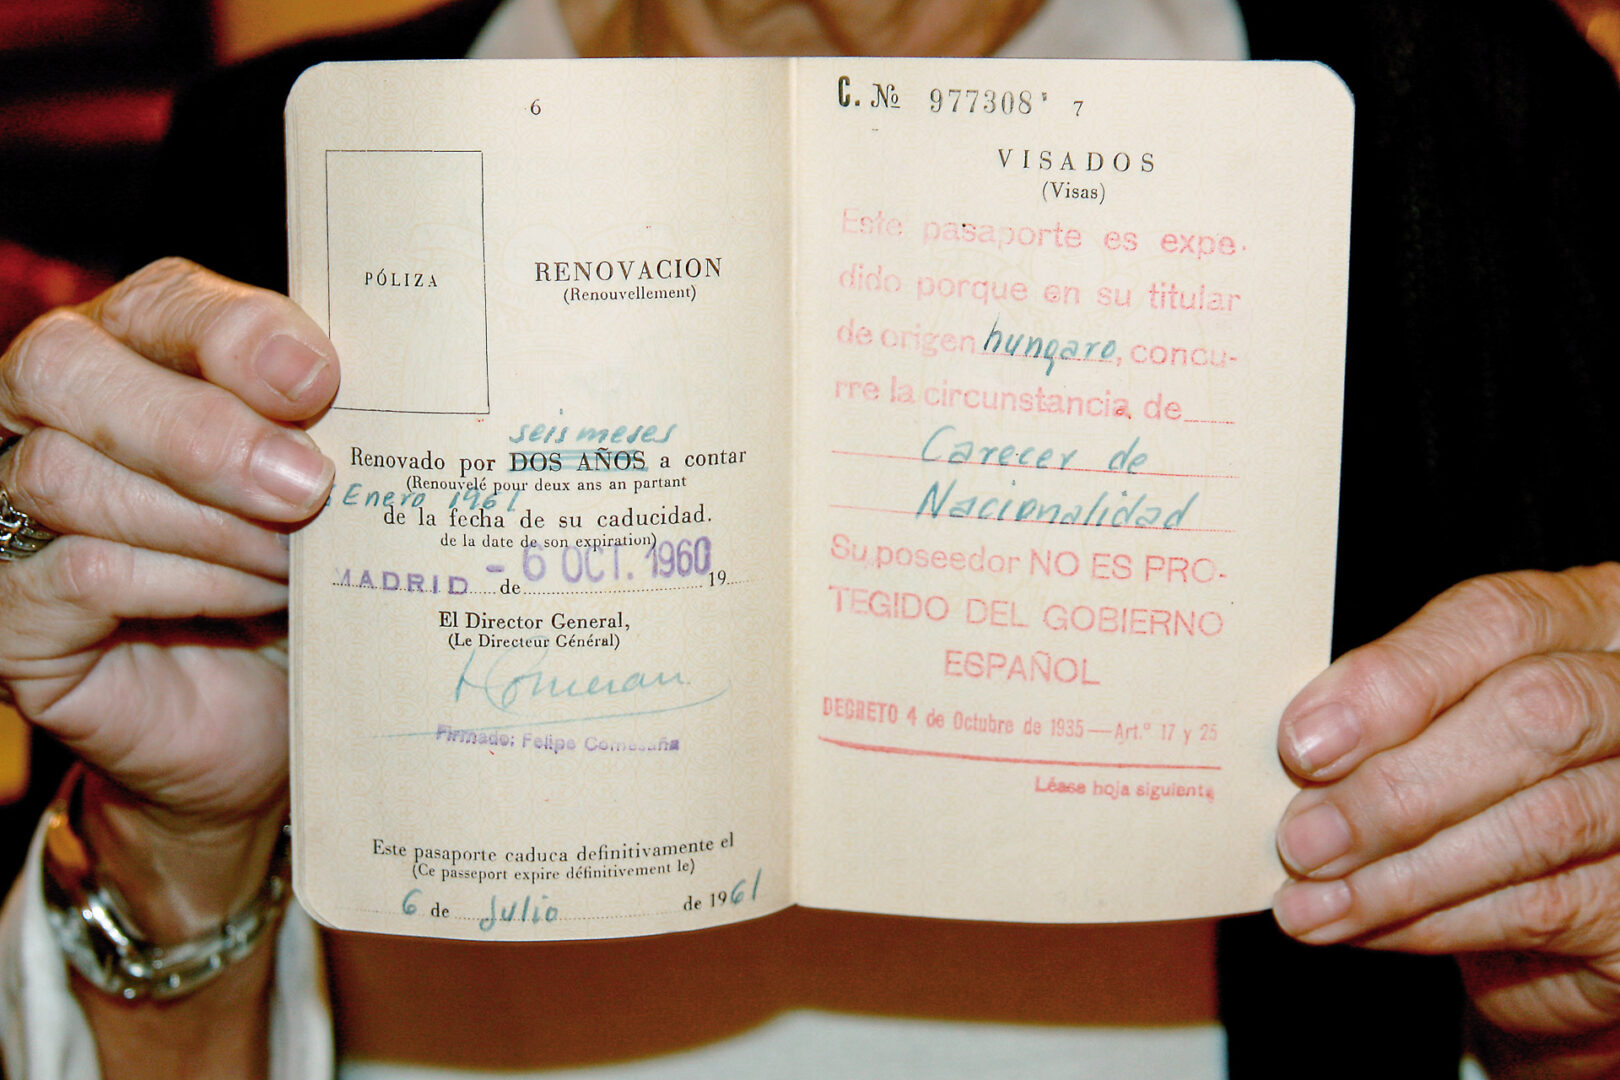 6
PÓLIZA
RENOVACION
(Renouvellement)
seis meses
Renovado por DOS AÑOS a contar
(Renouvelé pour deux ans an partant
Enero 1961
de la fecha de su caducidad.
de la date de son expiration)
MADRID de - 6 OCT. 1960 19
El Director General,
(Le Directeur Général)
Firmado: Felipe Comesaña
Este pasaporte caduca definitivamente el
(Ce passeport expire définitivement le)
6 de Julio de 1961
C. No 977308 7
VISADOS
(Visas)
Este pasaporte es expe-
dido porque en su titular
de origen hungaro, concu-
rre la circunstancia de
Carecer de
Nacionalidad
Su poseedor NO ES PRO-
TEGIDO DEL GOBIERNO
ESPAÑOL
DECRETO 4 de Octubre de 1935—Art.º 17 y 25
Léase hoja siguiente